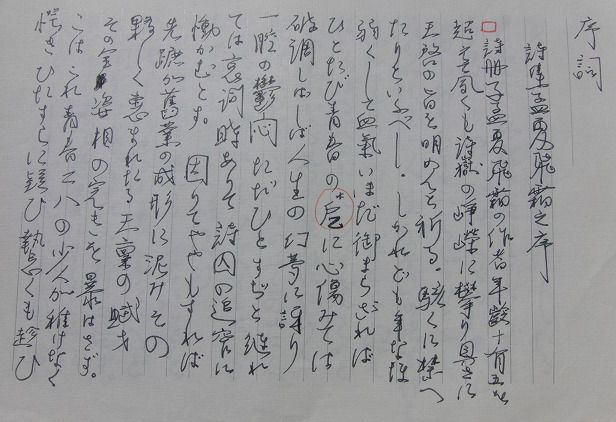 序詞
詩集孟夏飛霜之序
詩冊子孟夏飛霜の作者年齢十有五
超えて夙くも詩嶽の崢嶸に攀り具さに
王路の旨を明めんと祈る。 驍くに禁へ
たりといふべし。しかれども年なほ
弱くして血気いまだ御まらざれば
ひとたび青春の巵に心傷みては
破調しばしば人生の幻夢に
一腔の鬱悶ただひとすぢと縋れ
ては哀詞時ありて詩囚の追窄に
慟かむとす。 因りてややもすれば
先蹤が舊業の成形に泥みその
夥しく恵まれたる天稟の賦才
その実姿相の完きを曝はさず。
こはこれ青春二八の少人が稚けなく
ひたすらに競ひ執念くも趁ひ